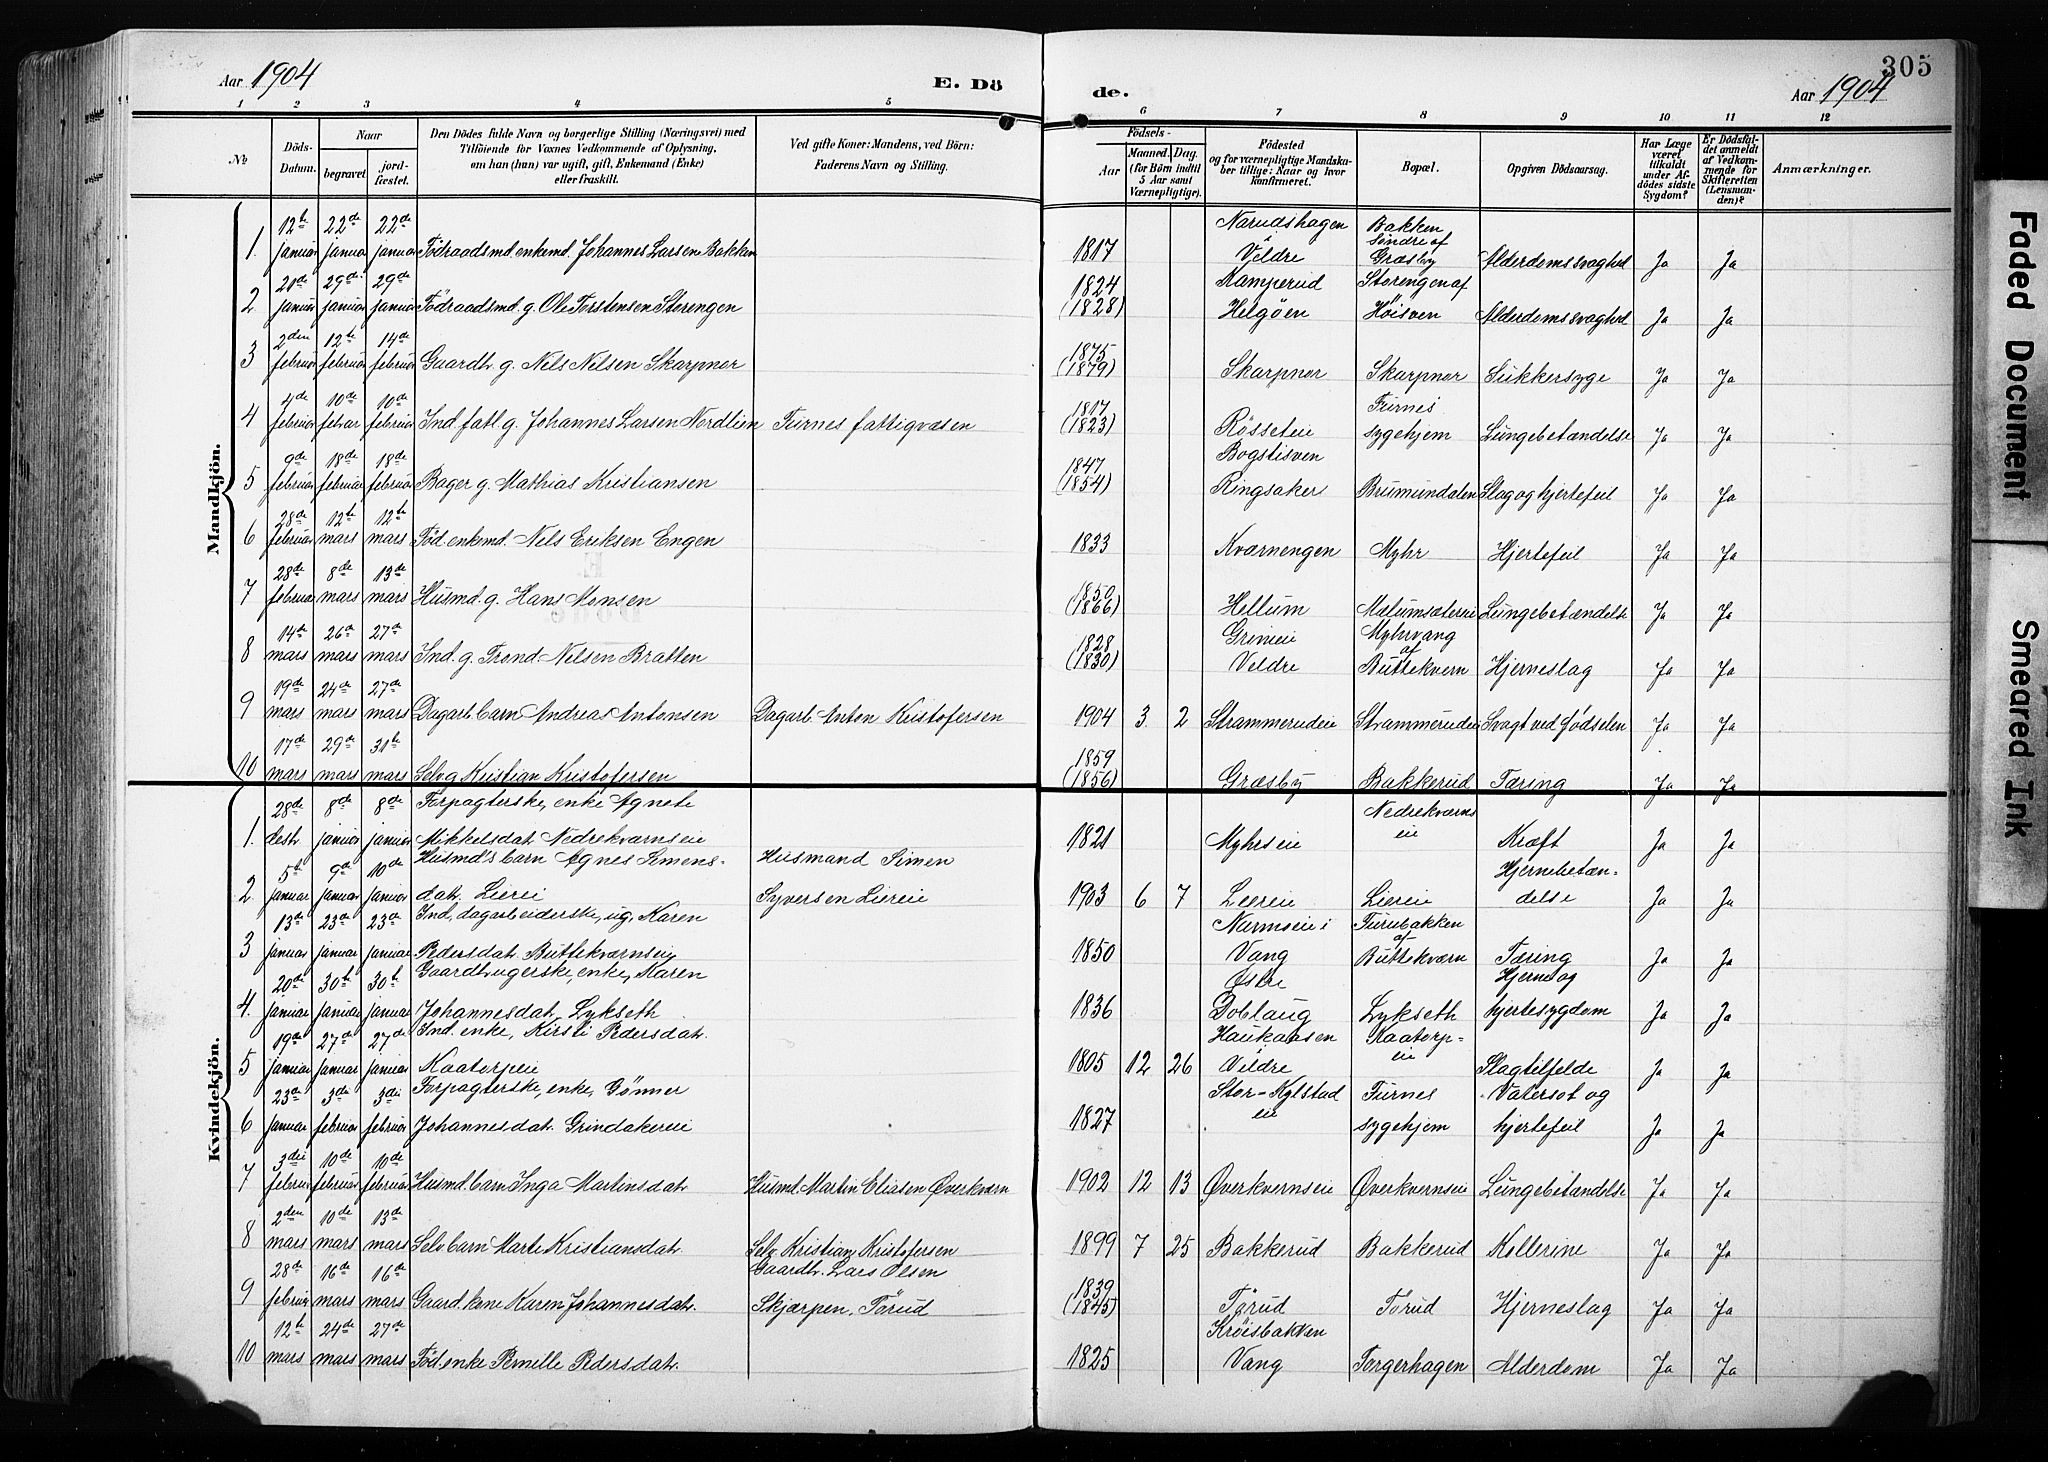 Aar 1904 E. Döde. Aar 1904 305
1 2 3 4 5 6 7 8 9 10 11 12
No Döds-Datum. Naar begravet jordfæstet. Den Dödes fulde Navn og borgerlige Stilling (Næringsvei) med Tilföiende for Voxnes Vedkommende af Oplysning, om han (hun) var ugift, gift, Enkemand (Enke) eller fraskilt. Ved gifte Koner: Mandens, ved Börn: Faderens Navn og Stilling. Födsels- Aar Maaned. Dag. (for Börn indtil 5 Aar samt Værnepligtige). Födested og for værnepligtige Mandskaber tillige: Naar og hvor konfirmeret. Bopæl. Opgiven Dödsaarsag. Har Læge været tilkaldt under Afdödes sidste Sygdom? Er Dödsfaldet anmeldt af Vedkommende for Skifteretten (Lensmanden)? Anmærkninger.
Mandkjön.
1. 12te januar 22de januar 22de januar Födraadsmd. enkemd. Johannes Larsen Bakken 1817 Narudshagen Veldre Bakken söndre af Græsby Alderdomssvaghed Ja Ja
2 21de januar 29de januar 29de januar Födraadsmd. g. Ole Torstensen Storengen 1824 (1828) Kamperud Helgöen Storengen af Höisven Alderdomssvaghed Ja Ja
3 2den februar 12te februar 14de februar Gaardbr. g. Nels Nelsen Skarpnor 1875 (1879) Skarpnor Skarpnor Sukkersyge Ja Ja
4 4de februar 10de februar 10de februar Ind. fatl. g. Johannes Larsen Nordlien Furnes fattigvæsen 1817 (1823) Rösseteie Furnes sygehjem Lungebetændelse Ja Ja
5 9de februar 18de februar 18de februar Bager g. Mathias Kristiansen 1847 (1854) Bogstisven Ringsaker Brumundalen Slag og hjertefeil Ja Ja
6 28de februar 12te mars 12te mars Föd. enkemd. Nels Eriksen Engen 1833 Kværnengen Myhr Hjertefeil Ja Ja
7 28de februar 8de mars 13de mars Husmd. g. Hans Monsen 1850 (1866) Hellum Mælumsætereie Lungebetændelse Ja Ja
8 14de mars 26de mars 27de mars Ind. g. Trond Nelsen Bratten 1828 (1830) Grineie Veldre Myhrvang af Buttekvern Hjerneslag Ja Ja
9 19de mars 24de mars 27de mars Dagarb. barn Andreas Antonsen Dagarb. Anton Kristofersen 1904 3 2 Strammerudeie Strammerudeie Svagt ved födselen Ja Ja
10 17de mars 29de mars 31te mars Selv. g. Kristian Kristofersen 1859 (1856) Græsby Bakkerud Tæring Ja Ja
Kvindekjön.
1. 28de desbr 8de januar 8de januar Forpagterske, enke Agnete Mikkelsdatr. Nedrekværnseie 1821 Myhrseie Nedrekværnseie Kræft Ja Ja
2. 5te januar 9de januar 10de januar Husmd's barn Agnes Simensdatr. Liereie Husmand Simen Syversen Liereie 1903 6 7 Leereie Liereie Hjernebetændelse Ja Ja
3 13de januar 23de januar 23de januar Ind., dagarbeiderske, ug. Karen Pedersdatr. Buttekværnseie 1850 Narmseie i Vang Furubakken af Buttekværn Tæring Ja Ja
4. 20de januar 30te januar 30te januar Gaardbrugerske, enke, Karen Johannesdatr. Lykseth 1836 Östre Doblaug Lykseth Hjerne og hjertesygdom Ja Ja
5 19de januar 27de januar 27de januar Ind. enke, Kirsti Pedersdatr. Kaatorpeie 1805 12 26 Haukaasen Veldre Kaatorpeie Slagtilfelde Ja Ja
6 23de januar 3die februar 3die februar Forpagterske, enke, Gönner Johannesdatr. Grindakereie 1827 Stor-Kylstadeie Furnes sygehjem Vatersot og hjertefeil Ja Ja
7 3die februar 10de februar 10de februar Husmd. barn Inga Martinsdatr. Husmd. Martin Eliasen Øverkværn 1902 12 13 Øverkvernseie Øverkvernseie Lungebetændelse Ja Ja
8 2den mars 10de mars 13de mars Selv. barn Marte Kristiansdatr. Selv. Kristian Kristofersen 1899 7 25 Bakkerud Bakkerud Kollerine Ja Ja
9 28de februar 16de mars 16de mars Gaard.kone Karen Johannesdatr. Gaardbr. Lars Olsen Skjærpen, Törud 1839 (1845) Törud Törud Hjerneslag Ja Ja
10 12te mars 24de mars 27de mars Föd. enke Pernille Pedersdatr. 1825 Kröisbakken Vang Torgerhagen Alderdom Ja Ja
Faded Document
Smeared Ink